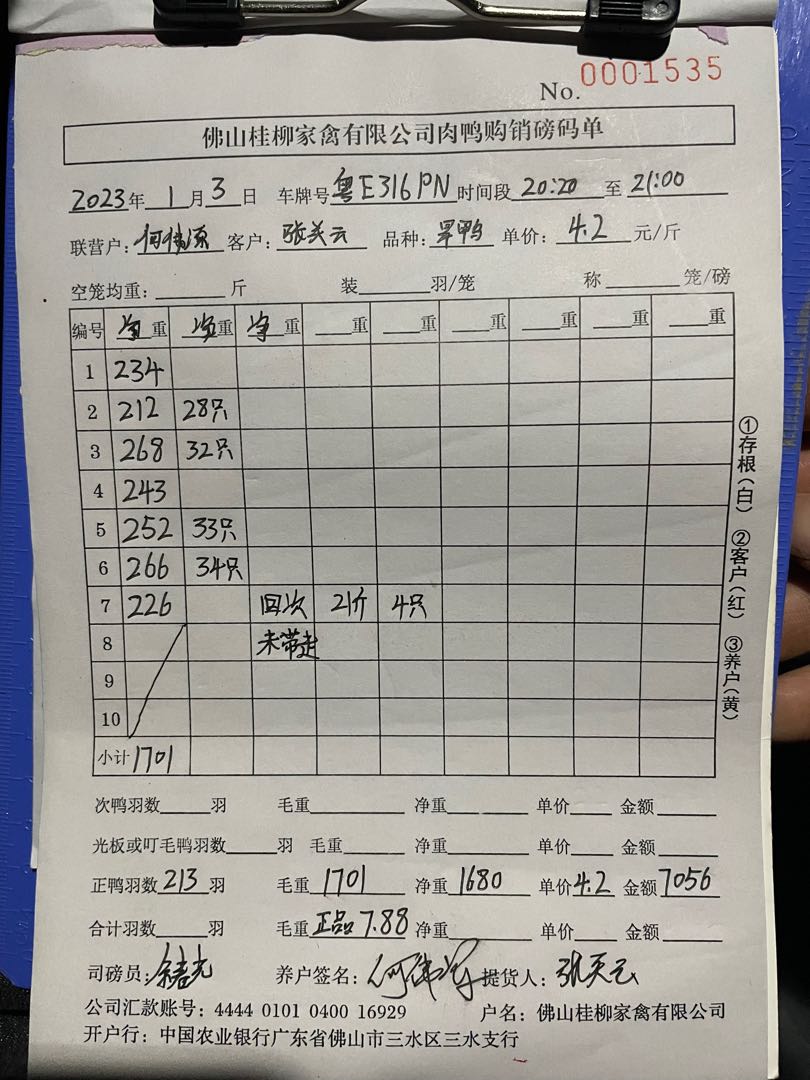 No. 0001535
佛山桂柳家禽有限公司肉鸭购销磅码单
2023年 1月 3日 车牌号 粤E316PN 时间段 20:20 至 21:00
联营户: 何伟源 客户: 张关云 品种: 旱鸭 单价: 4.2 元/斤
空笼均重: 斤 装 羽/笼 称 笼/磅
编号 净重 净重 净重 重 重 重 重 重 重
1 234
2 212 28只
3 268 32只
4 243
5 252 33只
6 266 34只
7 226 回次 21斤 4只
8 未带走
9
10
小计 1701
①存根(白) ②客户(红) ③养户(黄)
次鸭羽数 羽 毛重 净重 单价 金额
光板或叮毛鸭羽数 羽 毛重 净重 单价 金额
正鸭羽数 213 羽 毛重 1701 净重 1680 单价 4.2 金额 7056
合计羽数 羽 毛重 正品 7.88 净重 单价 金额
司磅员: 养户签名: 提货人:
公司汇款账号: 4444 0101 0400 16929 户名: 佛山桂柳家禽有限公司
开户行: 中国农业银行广东省佛山市三水区三水支行